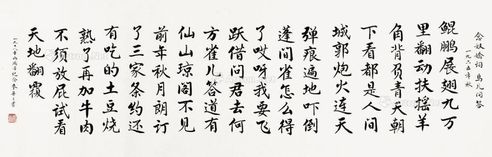 念奴娇词 鸟儿问答
一九六五年秋
鲲鹏展翅九万
里翻动扶摇羊
角背负青天朝
下看都是人间
城郭炮火连天
弹痕遍地吓倒
蓬间雀怎么得
了哎呀我要飞
跃借问君去何
方雀儿答道有
仙山琼阁不见
前年秋月朗订
了三家条约还
有吃的土豆烧
熟了再加牛肉
不须放屁试看
天地翻覆